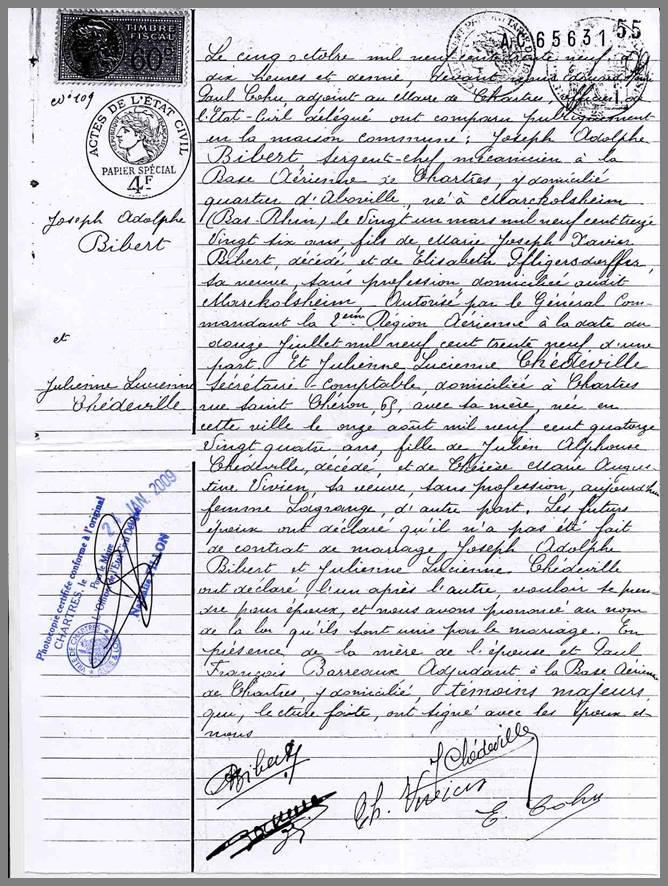 TIMBRE
FISCAL
60
AC 65631 55
N° 109
ACTES DE L'ETAT CIVIL
PAPIER SPÉCIAL
4F
Joseph Adolphe
Bibert
et
Julienne Lucienne
Chédeville
Photocopie certifiée conforme à l'original
CHARTRES, le 2 JAN. 2009
Pour le Maire
L'Officier de l'Etat
Le cinq octobre mil neuf cent trente neuf
dix heures et demie, devant
Paul Cohu, adjoint au Maire de Chartres, Officier de
l'Etat-Civil délégué ont comparu publiquement
en la maison commune : Joseph Adolphe
Bibert sergent-chef mécanicien à la
Base Aérienne de Chartres, y domicilié
quartier d'Aboville, né à Marckolsheim
(Bas-Rhin) le Vingt un mars mil neuf cent treize
Vingt six ans, fils de Marie Joseph Xavier
Bibert, décédé et de Elisabeth
sa veuve, sans profession domiciliée audit
Marckolsheim, Autorisé par le Général Com-
mandant la 2ème Région Aérienne à la date du
douze Juillet mil neuf cent trente neuf d'une
part. Et Julienne Lucienne Chédeville
Secrétaire-comptable, domiciliée à Chartres
rue Saint Chéron, 65, avec sa mère, née en
cette ville le onze août mil neuf cent quatorze
Vingt quatre ans, fille de Julien Alphonse
Chédeville, décédé, et de Thérèse Marie Augus-
tine Vivien, sa veuve, sans profession, aujourd'hui
femme Lagrange, d'autre part. Les futurs
époux ont déclaré qu'il n'a pas été fait
de contrat de mariage. Joseph Adolphe
Bibert et Julienne Lucienne Chédeville
ont déclaré, l'un après l'autre, vouloir se pren-
dre pour époux, et nous avons prononcé au nom
de la loi qu'ils sont unis par le mariage. En
présence de la mère de l'épouse et Paul
François Barreaux Adjudant à la Base Aérienne
de Chartres, y domicilié témoins majeurs
qui, lecture faite, ont signé avec les époux et
nous
Bibert
J Chédeville
Th. Vivien
E. Cohu